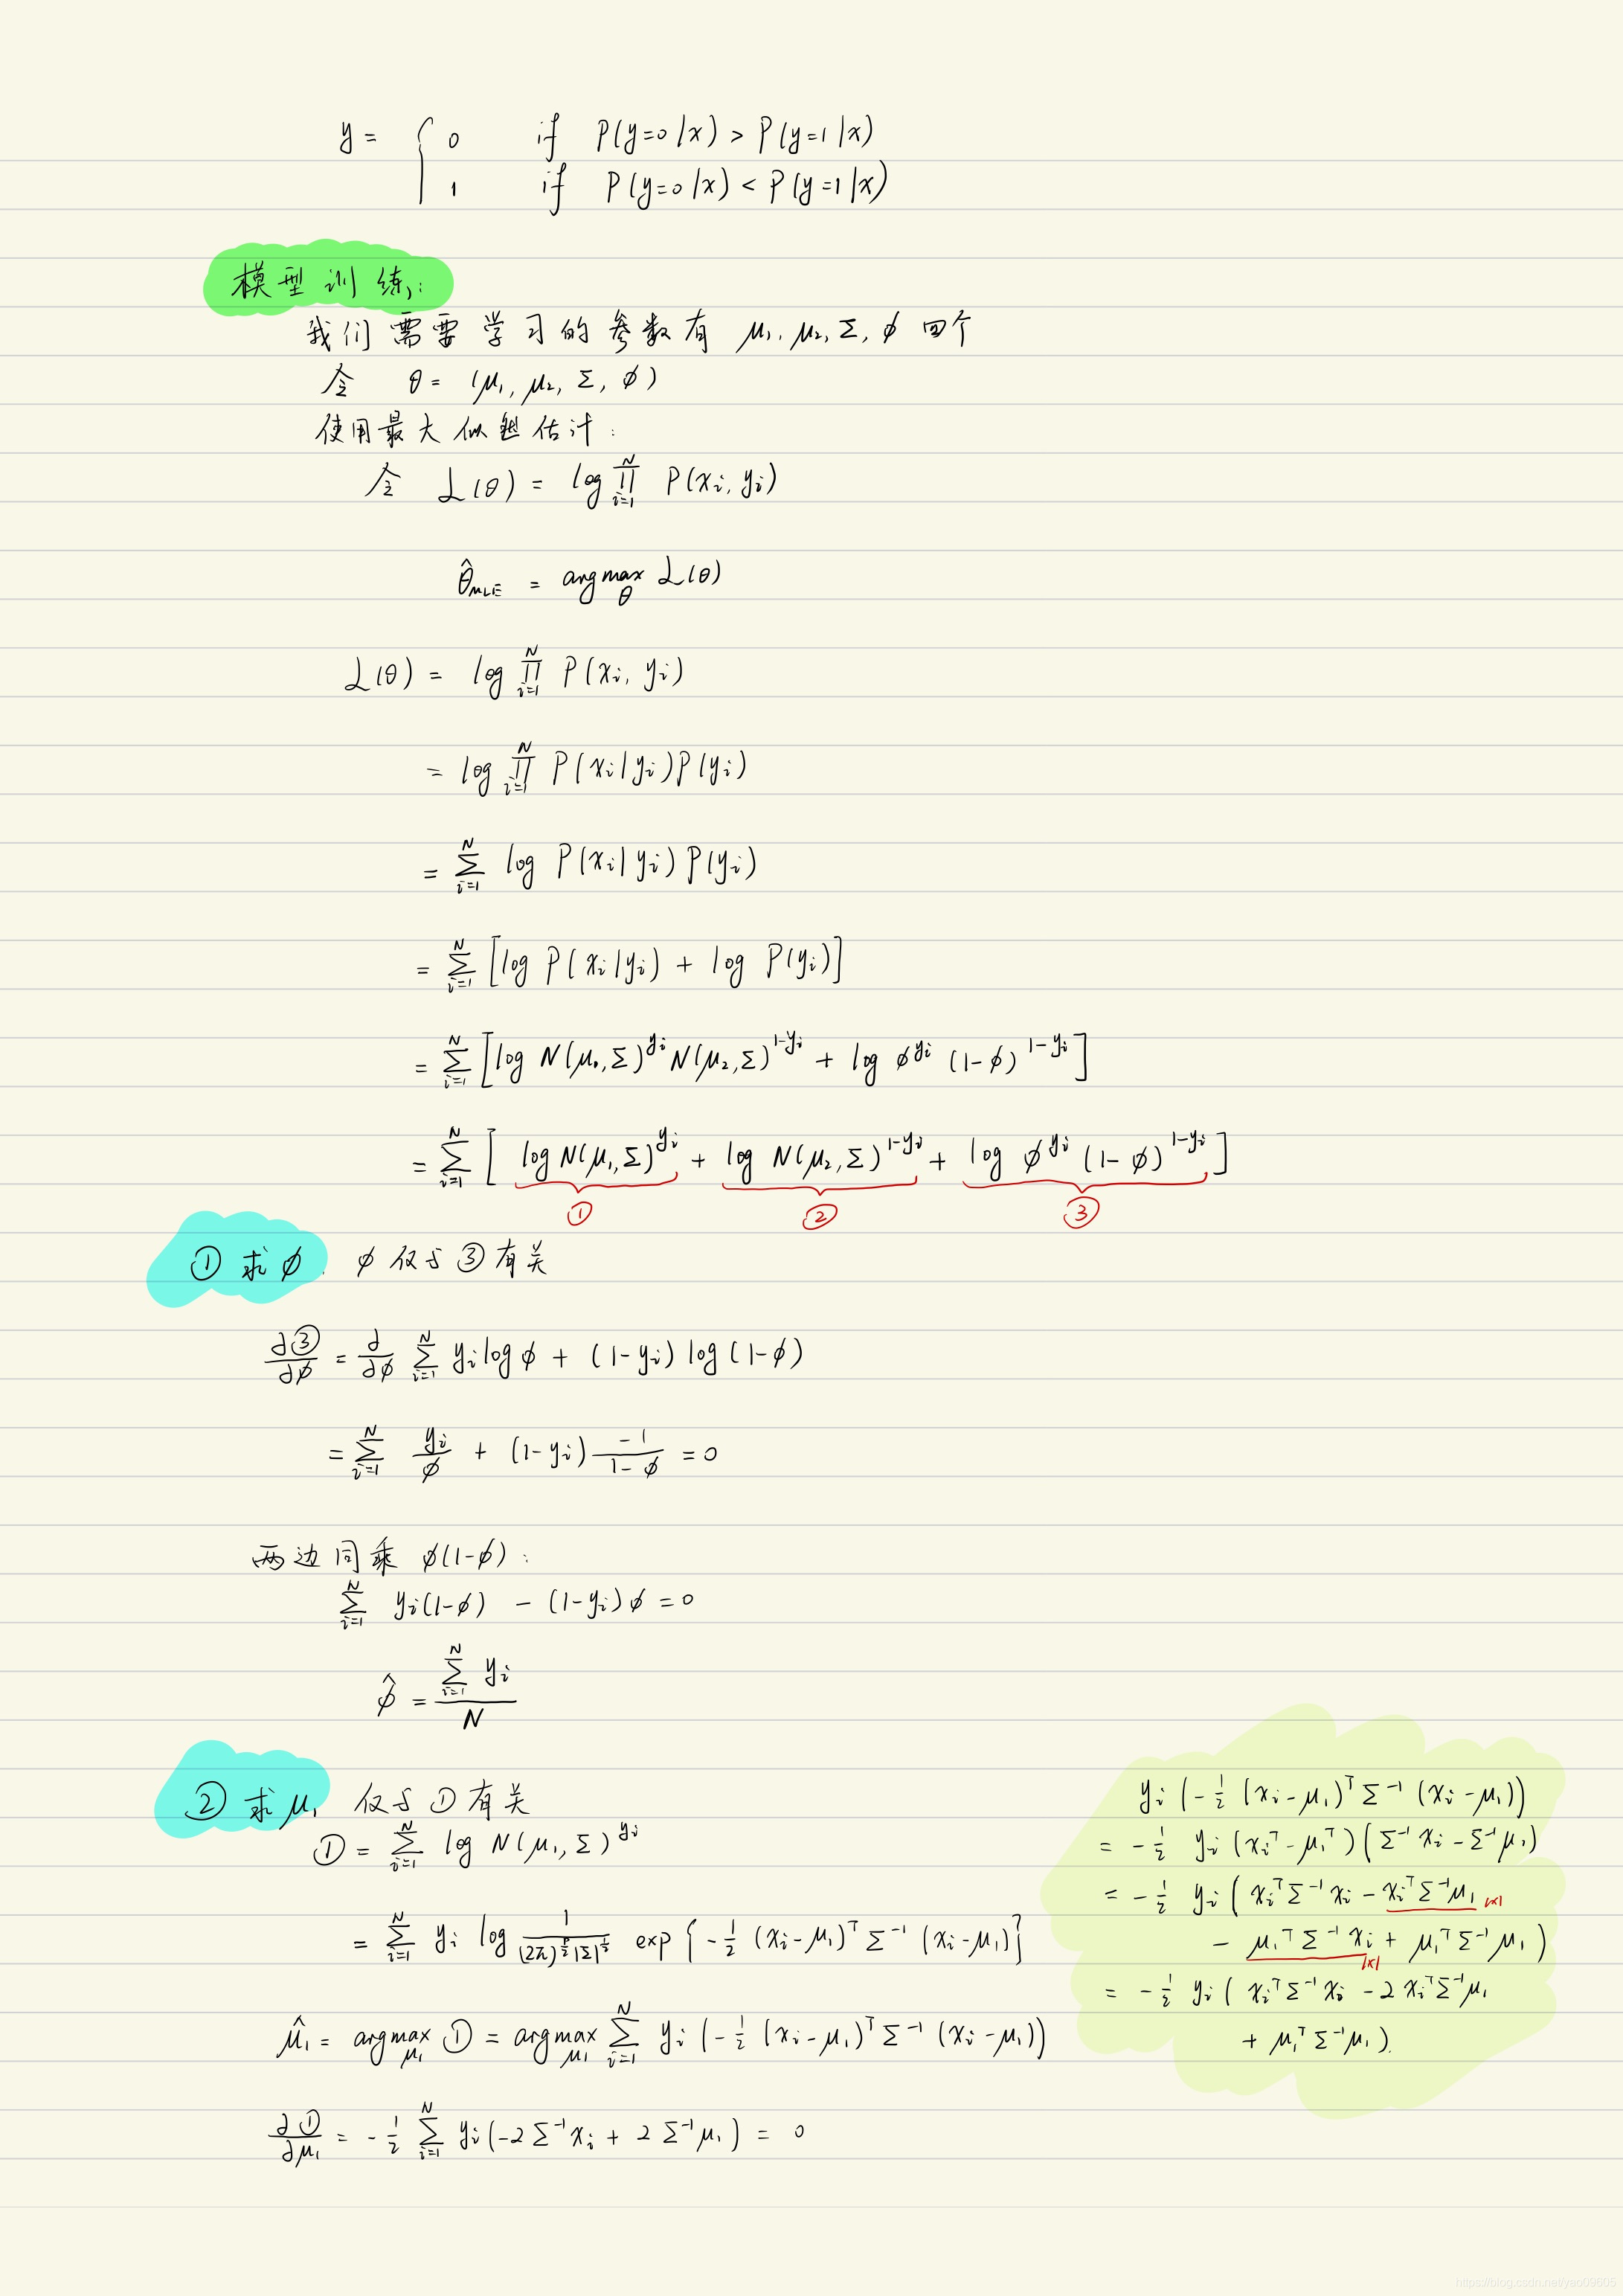 y = { 0 if P(y=0|x) > P(y=1|x)
1 if P(y=0|x) < P(y=1|x)
模型训练:
我们需要学习的参数有 μ₁, μ₂, Σ, ϕ 四个
令 θ = (μ₁, μ₂, Σ, ϕ)
使用最大似然估计:
令 L(θ) = log ∏_{i=1}^{N} P(x_i, y_i)
θ̂_MLE = argmax_θ L(θ)
L(θ) = log ∏_{i=1}^{N} P(x_i, y_i)
= log ∏_{i=1}^{N} P(x_i|y_i)P(y_i)
= ∑_{i=1}^{N} log P(x_i|y_i) P(y_i)
= ∑_{i=1}^{N} [log P(x_i|y_i) + log P(y_i)]
= ∑_{i=1}^{N} [log N(μ₁,Σ)^{y_i} N(μ₂,Σ)^{1-y_i} + log ϕ^{y_i} (1-ϕ)^{1-y_i}]
= ∑_{i=1}^{N} [log N(μ₁,Σ)^{y_i} + log N(μ₂,Σ)^{1-y_i} + log ϕ^{y_i} (1-ϕ)^{1-y_i}]
① ② ③
① 求ϕ. ϕ 仅与 ③ 有关
∂③/∂ϕ = ∂/∂ϕ ∑_{i=1}^{N} y_i log ϕ + (1-y_i) log (1-ϕ)
= ∑_{i=1}^{N} y_i/ϕ + (1-y_i) -1/(1-ϕ) = 0
两边同乘 ϕ(1-ϕ):
∑_{i=1}^{N} y_i(1-ϕ) - (1-y_i)ϕ = 0
ϕ̂ = ∑_{i=1}^{N} y_i / N
② 求μ₁ 仅与 ① 有关
① = ∑_{i=1}^{N} log N(μ₁,Σ)^{y_i}
= ∑_{i=1}^{N} y_i log 1/((2π)^{p/2}|Σ|^{1/2}) exp{-1/2 (x_i-μ₁)^T Σ^{-1} (x_i-μ₁)}
μ̂₁ = argmax_{μ₁} ① = argmax_{μ₁} ∑_{i=1}^{N} y_i (-1/2 (x_i-μ₁)^T Σ^{-1} (x_i-μ₁))
∂①/∂μ₁ = -1/2 ∑_{i=1}^{N} y_i(-2Σ^{-1}x_i + 2Σ^{-1}μ₁) = 0
y_i (-1/2 (x_i-μ₁)^T Σ^{-1} (x_i-μ₁))
= -1/2 y_i (x_i^T-μ₁^T)(Σ^{-1}x_i - Σ^{-1}μ₁)
= -1/2 y_i (x_i^TΣ^{-1}x_i - x_i^TΣ^{-1}μ₁ 1×1
- μ₁^TΣ^{-1}x_i + μ₁^TΣ^{-1}μ₁)
1×1
= -1/2 y_i (x_i^TΣ^{-1}x_i - 2x_i^TΣ^{-1}μ₁
+ μ₁^TΣ^{-1}μ₁).
https://blog.csdn.net/yao09605